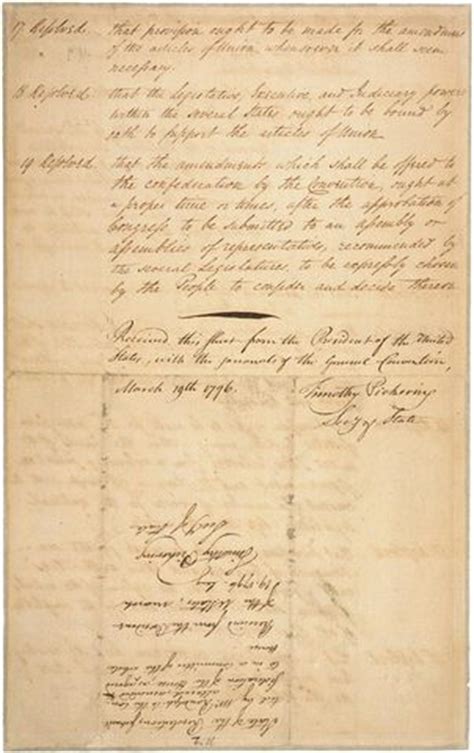 17 Resolved. that provision ought to be made for the amendment
of the articles of Union, whensoever it shall seem
necessary.
18 Resolved. that the Legislative, Executive, and Judiciary powers
within the several States ought to be bound by
oath to support the articles of Union
19 Resolved. that the amendments which shall be offered to
the confederation by the Convention, ought at
a proper time or times, after the approbation of
Congress to be submitted to an assembly or
assemblies of representatives, recommended by
the several Legislatures, to be expressly chosen
by the People to consider and decide thereon
Received this sheet from the President of the United
States, with the journals of the General Convention,
March 19th 1796.
Timothy Pickering
Secy of State
State of the Resolutions submit
ted by Mr Randolph to the con
altered, amended &
federation of the
to in a committee of the whole
House
Received from the President
of the U States, March
19. 1796. by
Timothy Pickering
Secy of State